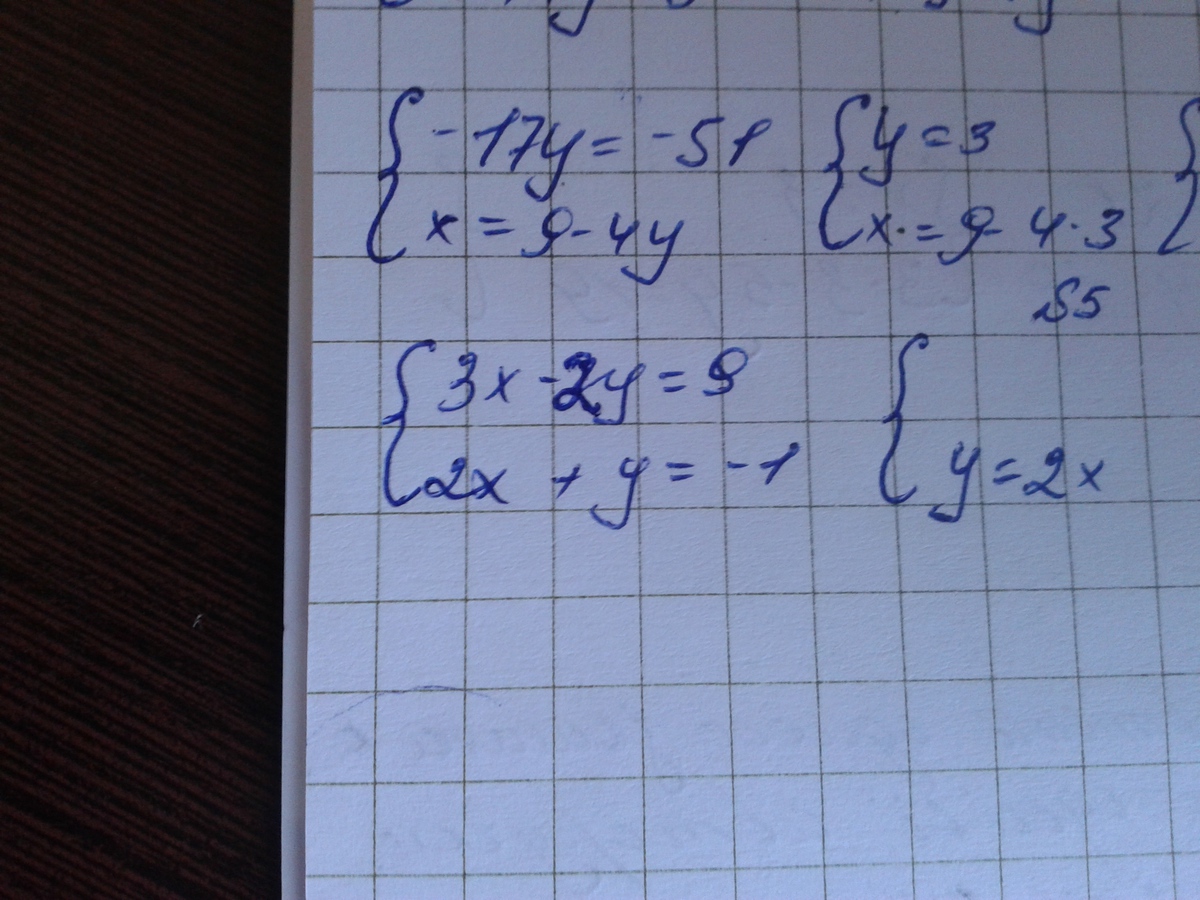 -17y = -51 y = 3
x = 9 - 4y x = 9 - 4·3
55
3x - 2y = 9
2x + y = -1 y = 2x